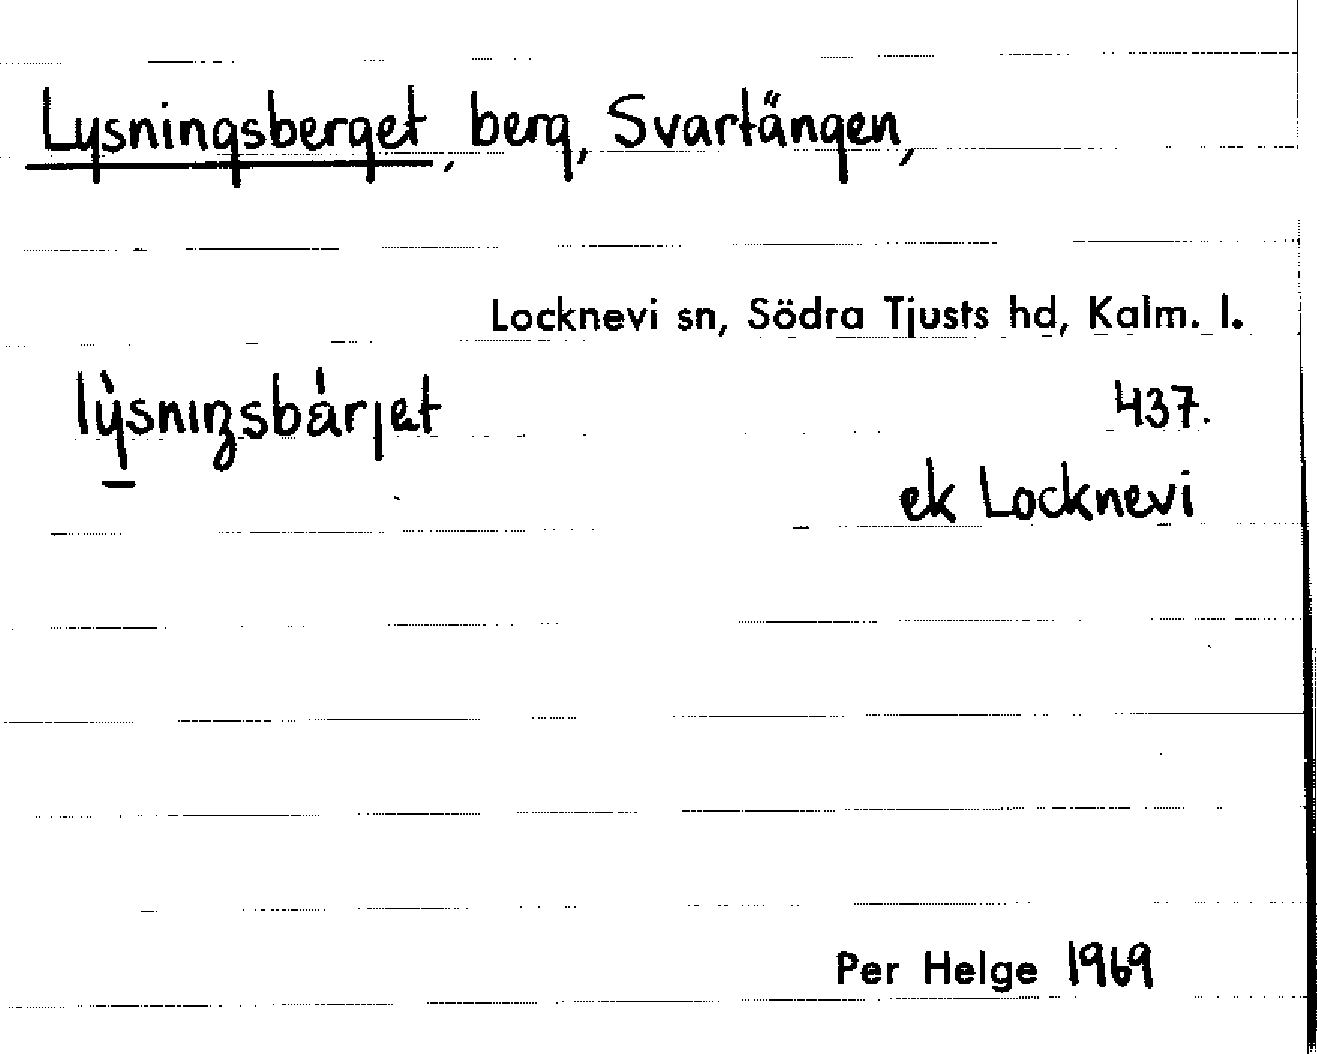 Lysningsberget, berg, Svartängen,
Locknevi sn, Södra Tjusts hd, Kalm. l.
lỳsnıŋsbárjet 437.
ek Locknevi
Per Helge 1969